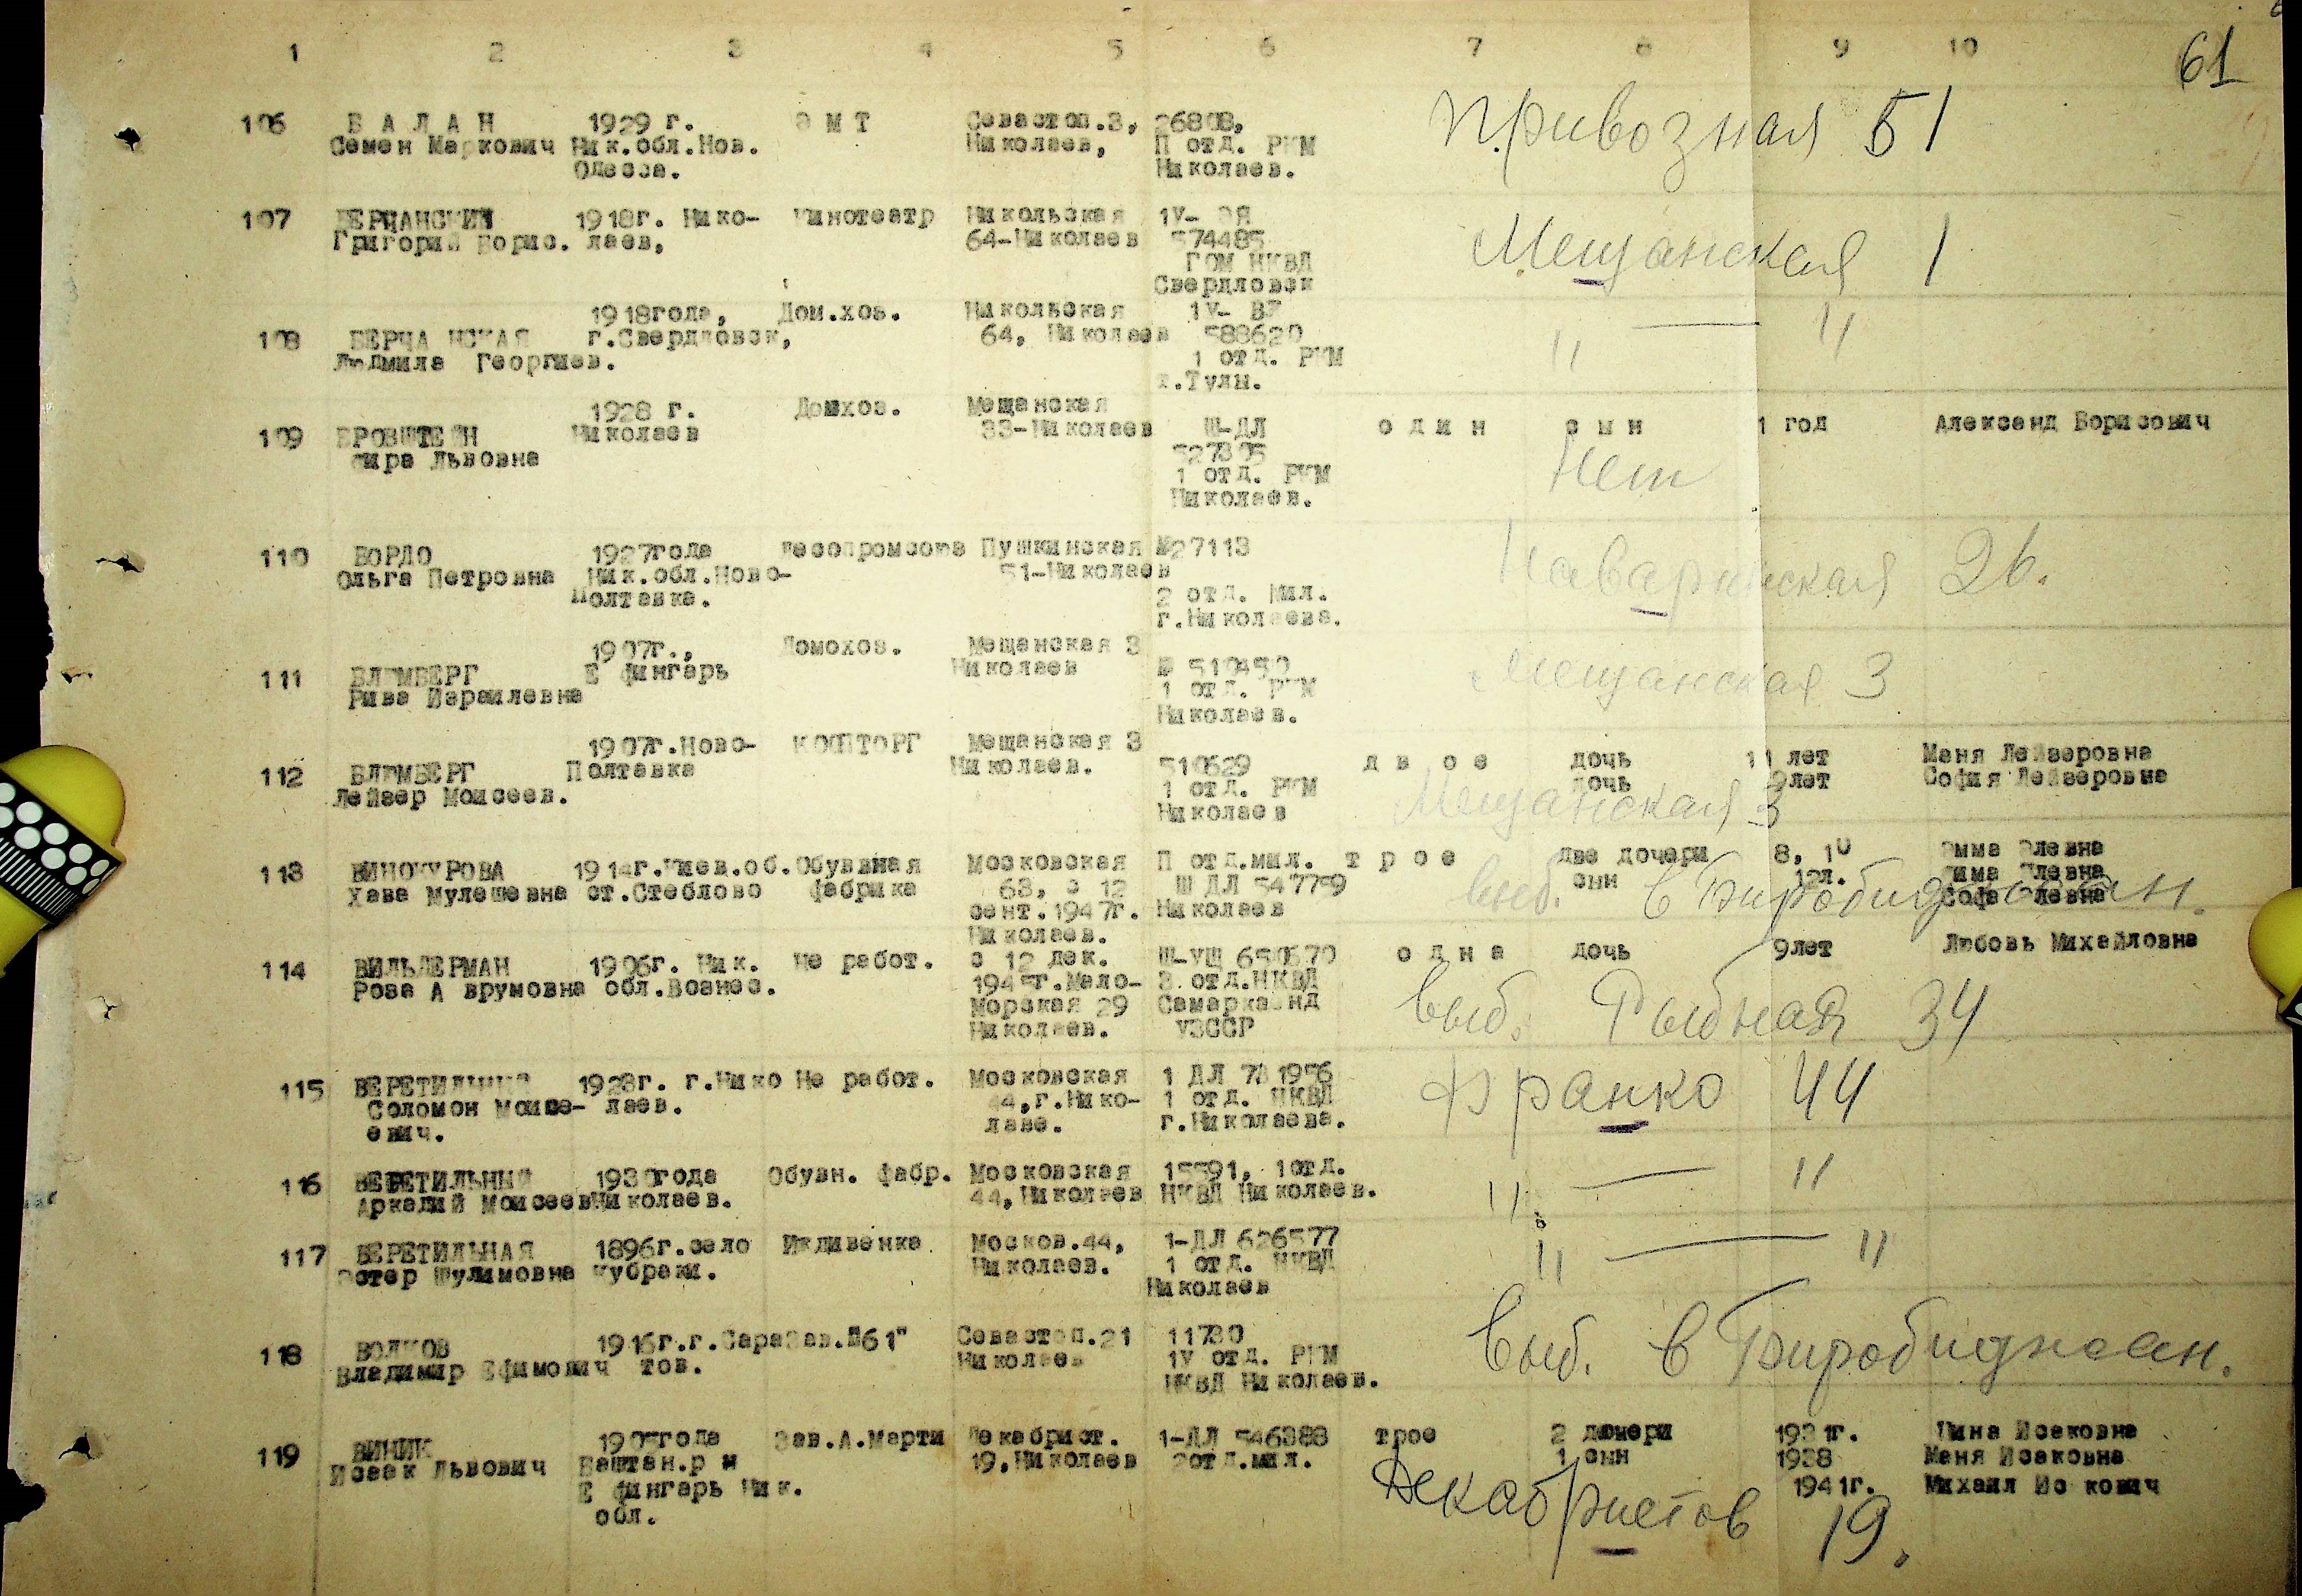 1 2 3 4 5 6 7 8 9 10
61
106 БАЛАН 1929 г. ЭМТ Севастоп.3, 26808, Привозная 51
Семен Маркович Ник.обл.Нов. Николаев, П отд. РКМ
Одесса. Николаев.
107 БЕРЧАНСКИЙ 1918г. Нико- Кинотеатр Никольская 1У- ЭЯ Мещанская 1
Григорий Борис. лаев, 64-Николаев 574485
ГОМ НКВД
Свердловск
1918года, Дом.хоз. Никольская 1У-
108 БЕРЧАНСКАЯ г.Свердловск, 64, Николаев 588620 " — "
Людмила Георгиев. 1 отд. РКМ
г.Тулы.
1928 г. Домхоз. Мещанская
109 БРОВШТЕЙН Николаев 33-Николаев Ш-ДЛ один сын 1 год Александ Борисович
Львовна 527305 Нет
1 отд. РКМ
Николаев.
110 БОРДО 1927года Лесопромсоюз Пушкинская №27113 Наваринская 26.
Ольга Петровна Ник.обл.Ново- 51-Николаев
Полтавка. 2 отд. Мил.
г.Николаева.
1907г., Домохоз. Мещанская 3
111 БЛЮМБЕРГ Е фингарь Николаев Ш 510450 Мещанская 3
Рива Израилевна 1 отд. РКМ
Николаев.
1907г.Ново- КОЙТОРГ Мещанская 3
112 БЛЮМБЕРГ Полтавка Николаев. 510629 двое дочь 11 лет Маня Лейзеровна
Лейзер Моисеев. 1 отд. РКМ дочь 9лет София Лейзеровна
Николаев Мещанская 3
113 ВИНОКУРОВА 1914г.Киев.об. Обувная Московская П отд.мил. трое две дочери 8, 10 Эмма Элевна
Хава Мулешевна ст.Стеблово фабрика 68, с 12 Ш ДЛ 547759 сын 12л. Дима Элевна
сент.1947г. Николаев Софа Элевна
Николаев. выб. в Биробиджан.
114 ВИЛЬДЕРМАН 1906г. Ник. Не работ. с 12 дек. Ш-УЩ 650670 одна дочь 9лет Любовь Михайловна
Роза А врумовна обл.Вознес. 1945г.Мало- 3 отд.НКВД
Морская 29 Самарканд выб. Рыбная 34
Николаев. УЗССР
115 ВЕРЕТИЛЬНЫЙ 1928г. г.Нико Не работ. Московская 1 ДЛ 731956 Франко 44
Соломон Моисе- лаев. 44,г.Нико- 1 отд. НКВД
евич. лаве. г.Николаева.
116 ВЕРЕТИЛЬНЫЙ 1930года Обувн. фабр. Московская 15591, 1отд. " — "
Аркадий Моисеев Николаев. 44,Николаев НКВД Николаев.
117 ВЕРЕТИЛЬНАЯ 1896г.село Иждивенка Москов.44, 1-ДЛ 626577 " — "
Эстер Шулимовна Кубраки. Николаев. 1 отд. НКВД
Николаев
118 ВОЛКОВ 1916г.г.Сара Зав."61" Севастоп.21 11730 выб. в Биробиджан.
Владимир Ефимович тов. Николаев 1У отд. РКМ
НКВД Николаев.
119 ВИНИК 1905года Зав.А.Марти Декабрист. 1-ДЛ 546388 трое 2 дочери 1931г. Исаковна
Исаак Львович Баштан.р н 19,Николаев 2отд.мил. 1 сын 1938 Маня Исаковна
Е фингарь Ник. 1941г. Михаил Ис кович
обл. Декабристов 19.